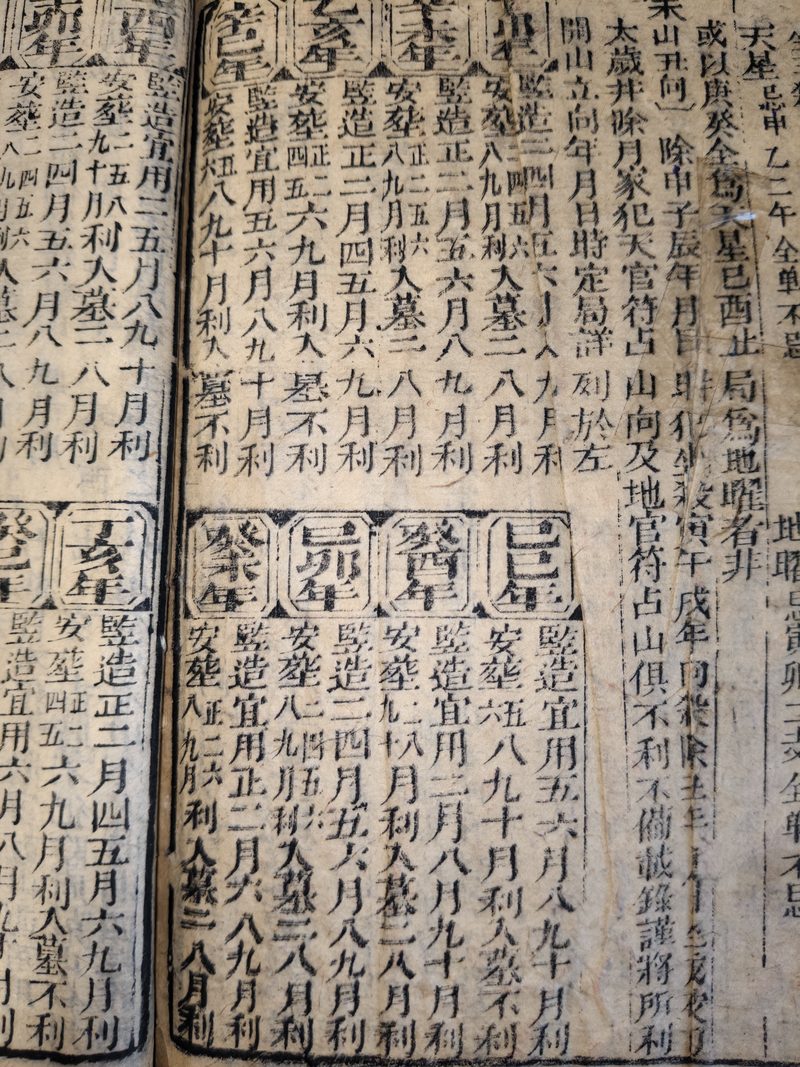 天星忌申乙二午全戦不忌
地曜忌寅卯二
全戦不忌
或以庚癸全為天星巳酉止局為地曜者非
未山丑向 除申子辰年月日時犯坐殺寅午戌年向殺除
太歲并除月家犯天官符占山向及地官符占山俱不利不備載錄謹將所利
開山立向年月日時定局詳列於左
卯年
竪造二四月五六月八九月利
安塟二四五六八九月利入墓二八月利
辛未年
竪造正二月五六月八九月利
安塟正二五六八九月利入墓二八月利
乙亥年
竪造正二月四五月六九月利
安塟正二四五六九月利入墓不利
辛巳年
竪造宜用五六月八九十月利
安塟五六八九十月利入墓不利
己巳年
竪造宜用五六月八九十月利
安塟五六八九十月利入墓不利
癸酉年
竪造宜用二月八月九十月利
安塟二八九十月利入墓二八月利
己卯年
竪造二四月五六月八九月利
安塟二四五六八九月利入墓二八月利
癸未年
竪造宜用正二月六八九月利
安塟正二六八九月利入墓二八月利
酉年
竪造宜用二五月八九十月利
安塟二五八九十月利入墓二八月利
卯年
竪造二四月五六月八九月利
安塟二四五六八九月利入墓二八月利
丁亥年
竪造正二月四五月六九月利
安塟正二四五六九月利入墓不利
癸巳年
竪造宜用六月八月九十月利